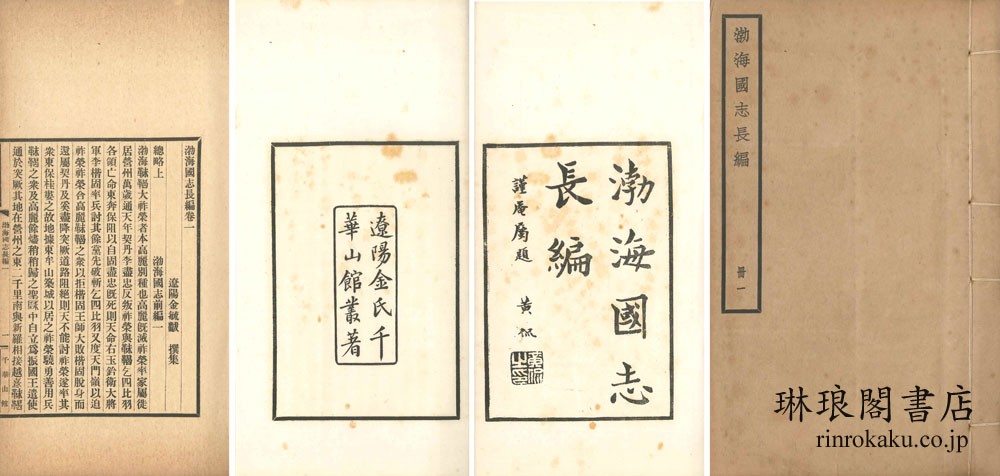 渤海國志長編
冊一
渤海國志
長編
謹庵屬題
黃侃
遼陽金氏千
華山館叢著
渤海國志長編卷一
遼陽金毓黻 撰集
總略上 渤海國志前編一
渤海靺鞨大祚榮者本高麗別種也高麗旣滅祚榮率家屬徙
居營州萬歲通天年契丹李盡忠反叛祚榮與靺鞨乞四比羽
各領亡命東奔保阻以自固盡忠旣死則天命右玉鈐衛大將
軍李楷固率兵討其餘黨先破斬乞四比羽又度天門嶺以迫
祚榮祚榮合高麗靺鞨之衆以拒楷固王師大敗楷固脫身而
還屬契丹及奚盡降突厥道路阻絕則天不能討祚榮遂率其
衆東保桂婁之故地據東牟山築城以居之祚榮驍勇善用兵
靺鞨之衆及高麗餘燼稍稍歸之聖曆中自立爲振國王遣使
通於突厥其地在營州之東二千里南與新羅相接越憙靺鞨
渤海國志長編一 一 千華山館
琳琅閣書店
rinrokaku.co.jp